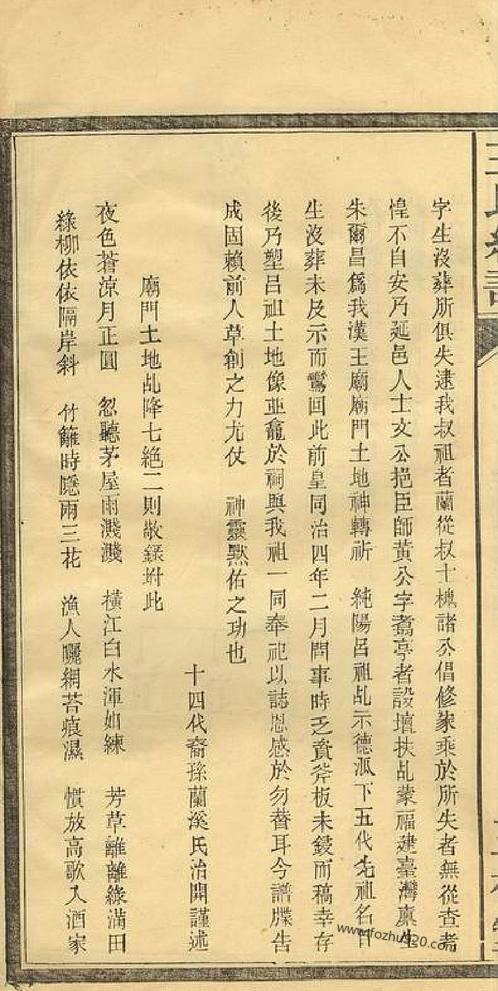 字生沒葬所俱失逮我叔祖者蘭從叔士槐諸公倡修家乘於所失者無從查考
惶不自安乃延邑人士文公挹臣師黃公字翥亭者設壇扶乩蒙福建臺灣稟生
朱爾昌為我漢王廟廟門土地神轉祈 純陽呂祖乩示德派下五代先祖名目
生沒葬未及示而鸞回此前皇同治四年二月間事時乏資斧板未鋟而稿幸存
後乃塑呂祖土地像並龕於祠與我祖一同奉祀以誌恩感於勿替耳今譜牒告
成固賴前人草創之力尤仗 神靈默佑之功也
十四代裔孫蘭溪氏治開謹述
廟門土地乩降七絕二則敬錄坿此
夜色蒼涼月正圓 忽聽茅屋雨濺濺 橫江白水渾如練 芳草離離綠滿田
綠柳依依隔岸斜 竹籬時隱兩三花 漁人曬網苔痕濕 慣放高歌入酒家
www.fozhu920.com